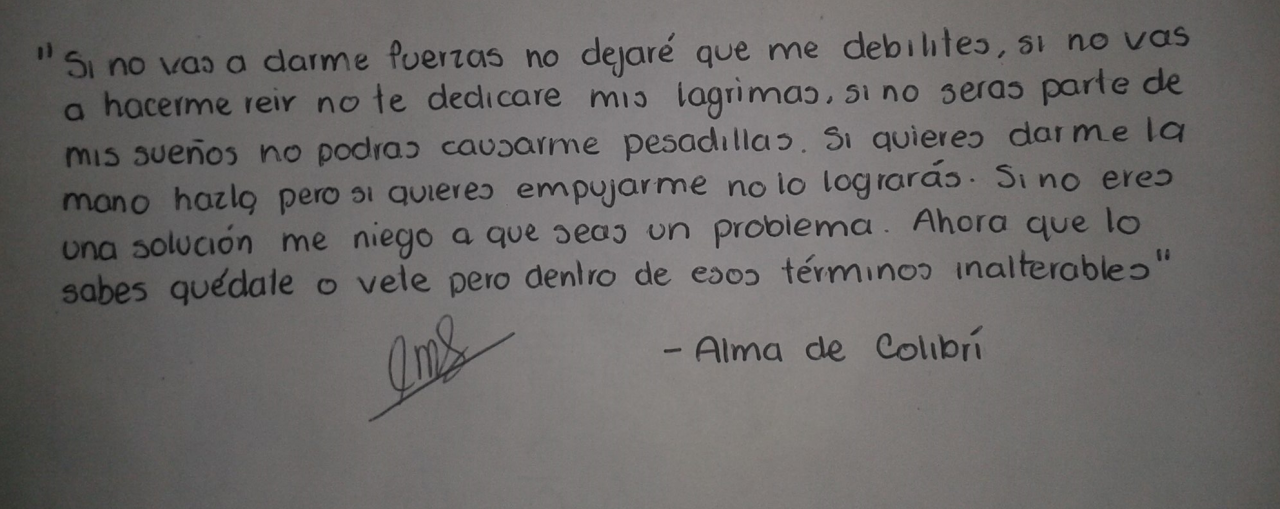 "Si no vas a darme fuerzas no dejaré que me debilites, si no vas
a hacerme reir no te dedicare mis lagrimas, si no seras parte de
mis sueños no podras causarme pesadillas. Si quieres darme la
mano hazlo pero si quieres empujarme no lo lograrás. Si no eres
una solución me niego a que seas un problema. Ahora que lo
sabes quédate o vete pero dentro de esos términos inalterables"
- Alma de Colibrí